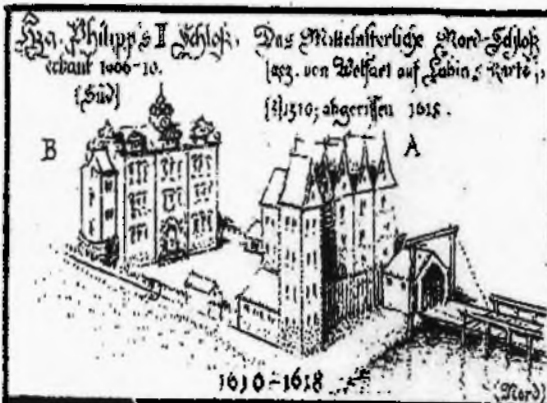 Hzg. Philipp's II Schloß,
erbaut 1606-10.
(Süd)
Das Mittelalterliche Nord-Schloß
(gez. von auf Lubin's Karte),
1310; abgerissen 1618.
B
A
1610-1618
(Nord)